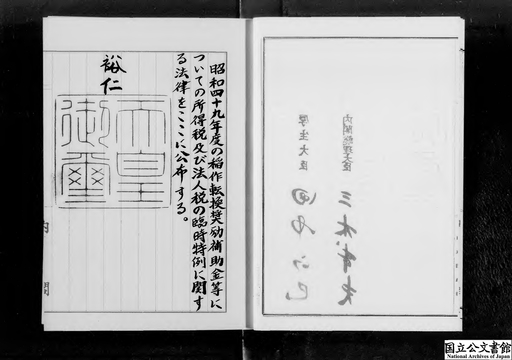 昭和四十九年度の稲作転換奨励補助金等に
ついての所得税及び法人税の臨時特例に関す
る法律をここに公布する。
裕仁
天皇
御璽
内閣
内閣総理大臣
三木武夫
厚生大臣
田中正巳
国立公文書館
National Archives of Japan